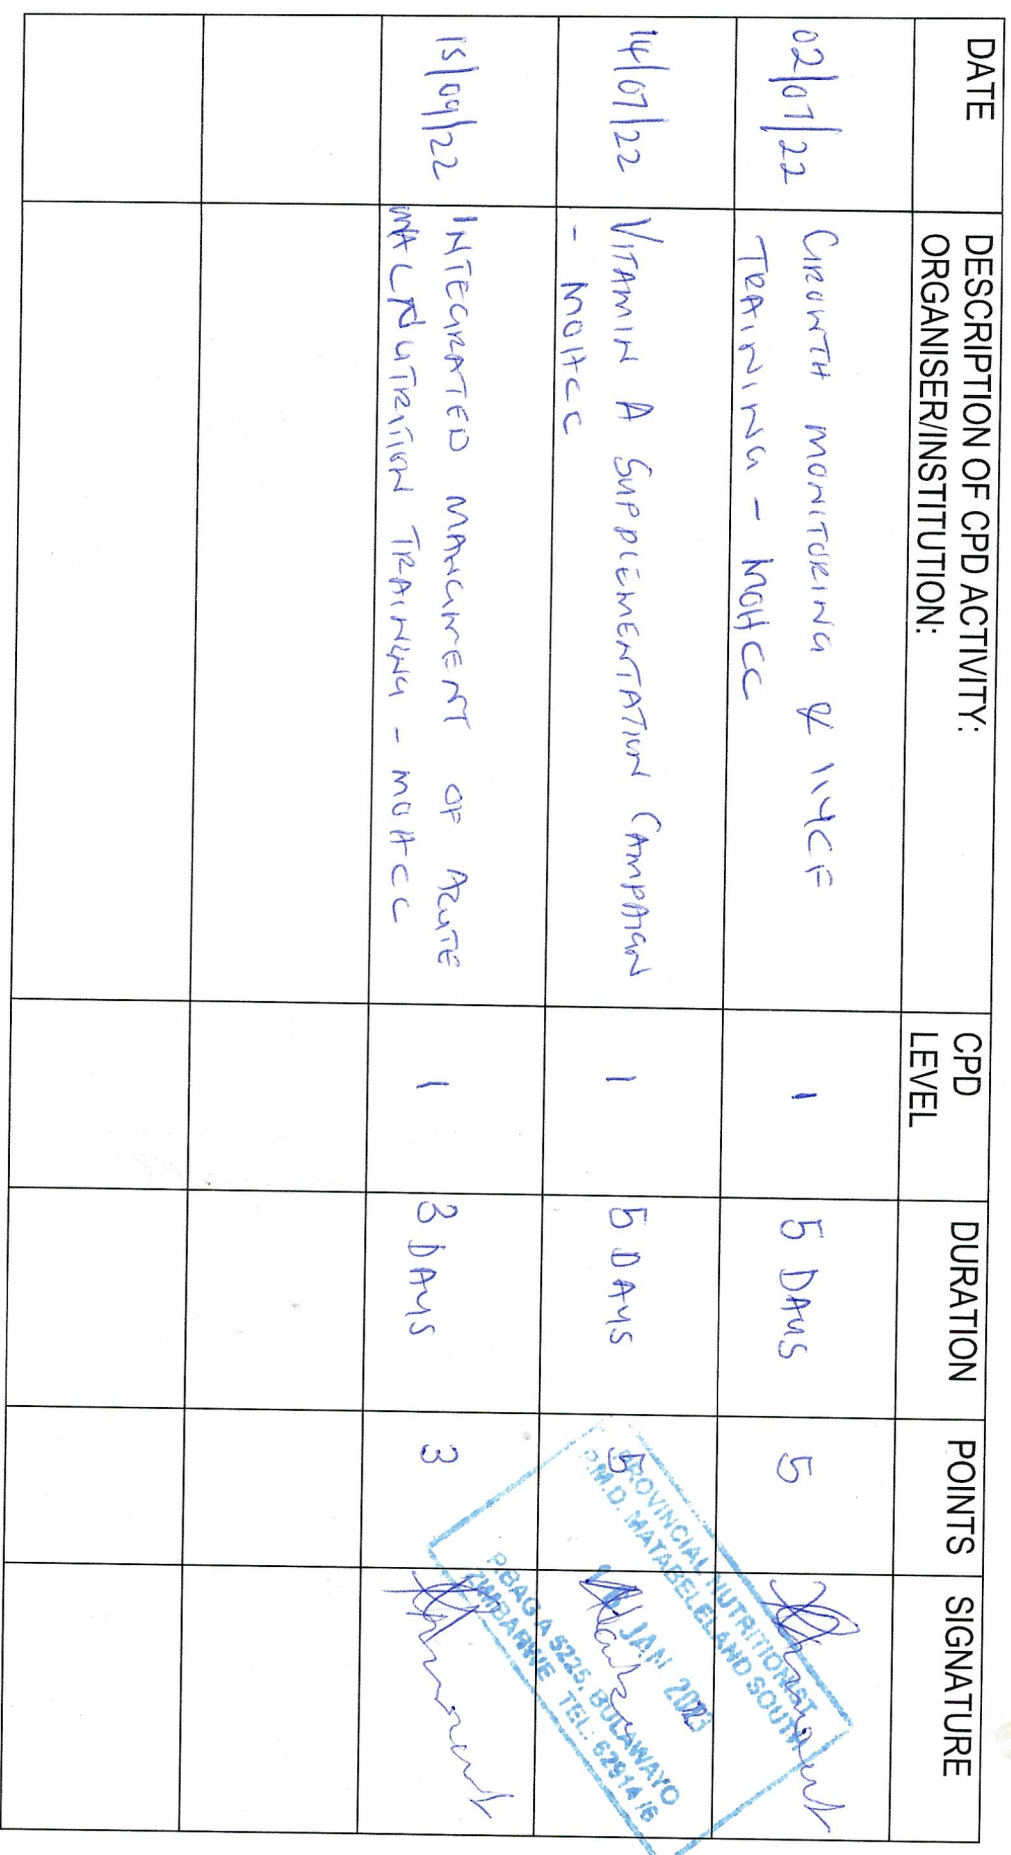 DATE
DESCRIPTION OF CPD ACTIVITY:
ORGANISER/INSTITUTION:
CPD
LEVEL
DURATION
POINTS
SIGNATURE
02/07/22
GROWTH MONITORING & IYCF
TRAINING - MOHCC
1
5 DAYS
5
14/07/22
VITAMIN A SUPPLEMENTATION CAMPAIGN
- MOHCC
1
5 DAYS
5
15/09/22
INTEGRATED MANGMENT OF ACUTE
MALNUTRITION TRAINING - MOHCC
1
3 DAYS
3
PROVINCIAL NUTRITIONIST
P.M.D. MATABELELAND SOUTH
JAN 2023
P.BAG A 5225, BULAWAYO
ZIMBABWE TEL.: 62914/6